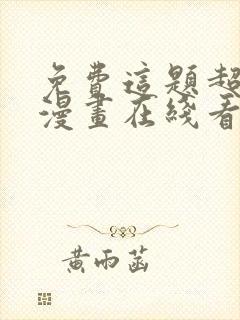 免費這題超
漫畫在綫看
黃雨菡